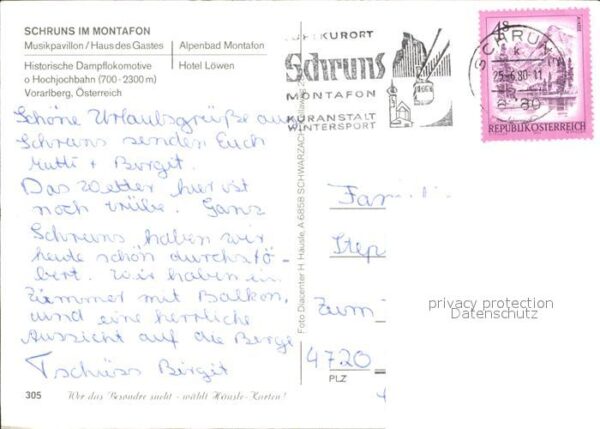 SCHRUNS IM MONTAFON
Musikpavillon / Haus des Gastes
Alpenbad Montafon
Historische Dampflokomotive
o Hochjochbahn (700 - 2300 m)
Vorarlberg, Österreich
Hotel Löwen
Schöne Urlaubsgrüße aus
Schruns senden Euch
Mutti + Birgit.
Das Wetter hier ist
noch trübe. Ganz
Schruns haben wir
heute schön durchstö-
bert. Wir haben ein
Zimmer mit Balkon,
und eine herrliche
Aussicht auf die Berge
Tschüss Birgit
305
Wer das Besondre sucht - wählt Häusle-Karten!
Foto Diacenter H. Häusle, A 6858 SCHWARZACH
LUFTKURORT
Schruns
MONTAFON
KURANSTALT
WINTERSPORT
SCHRUNS
25.-6.80-11
6780
S
REPUBLIK ÖSTERREICH
Famili
Step
Zum
4720
PLZ
privacy protection
Datenschutz